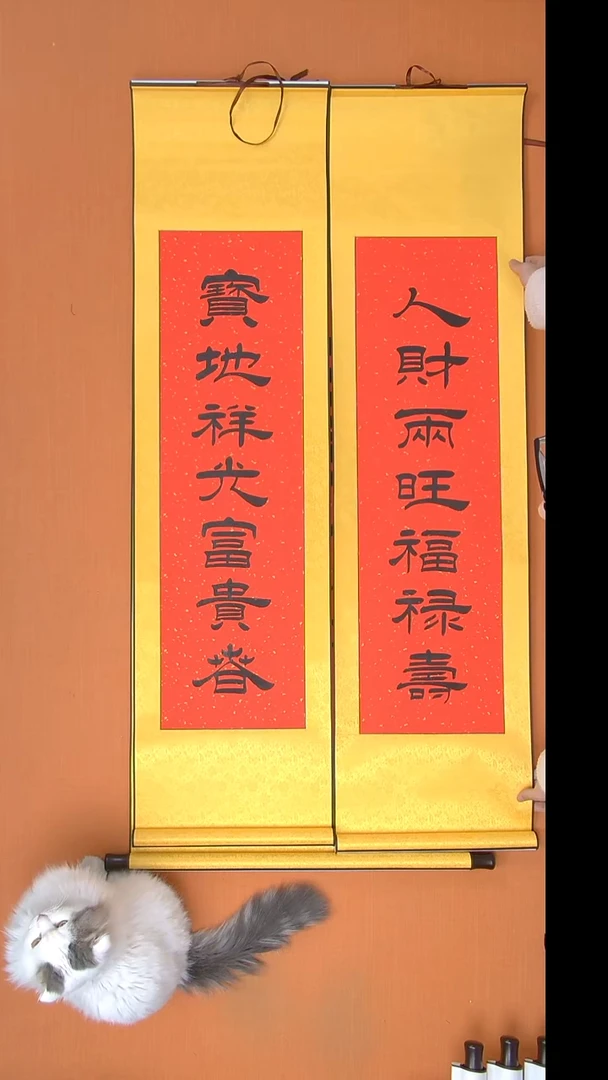 人財兩旺福禄壽
寶地祥光富貴春